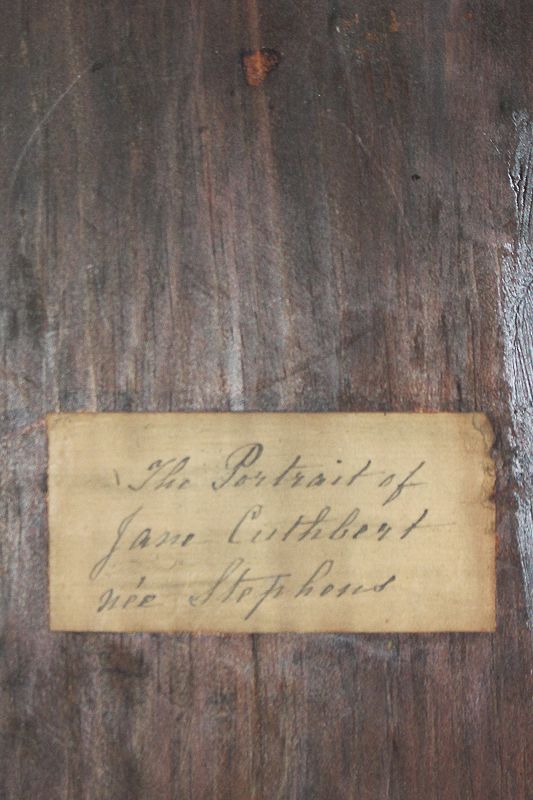 The Portrait of
Jane Cuthbert
née Stephens